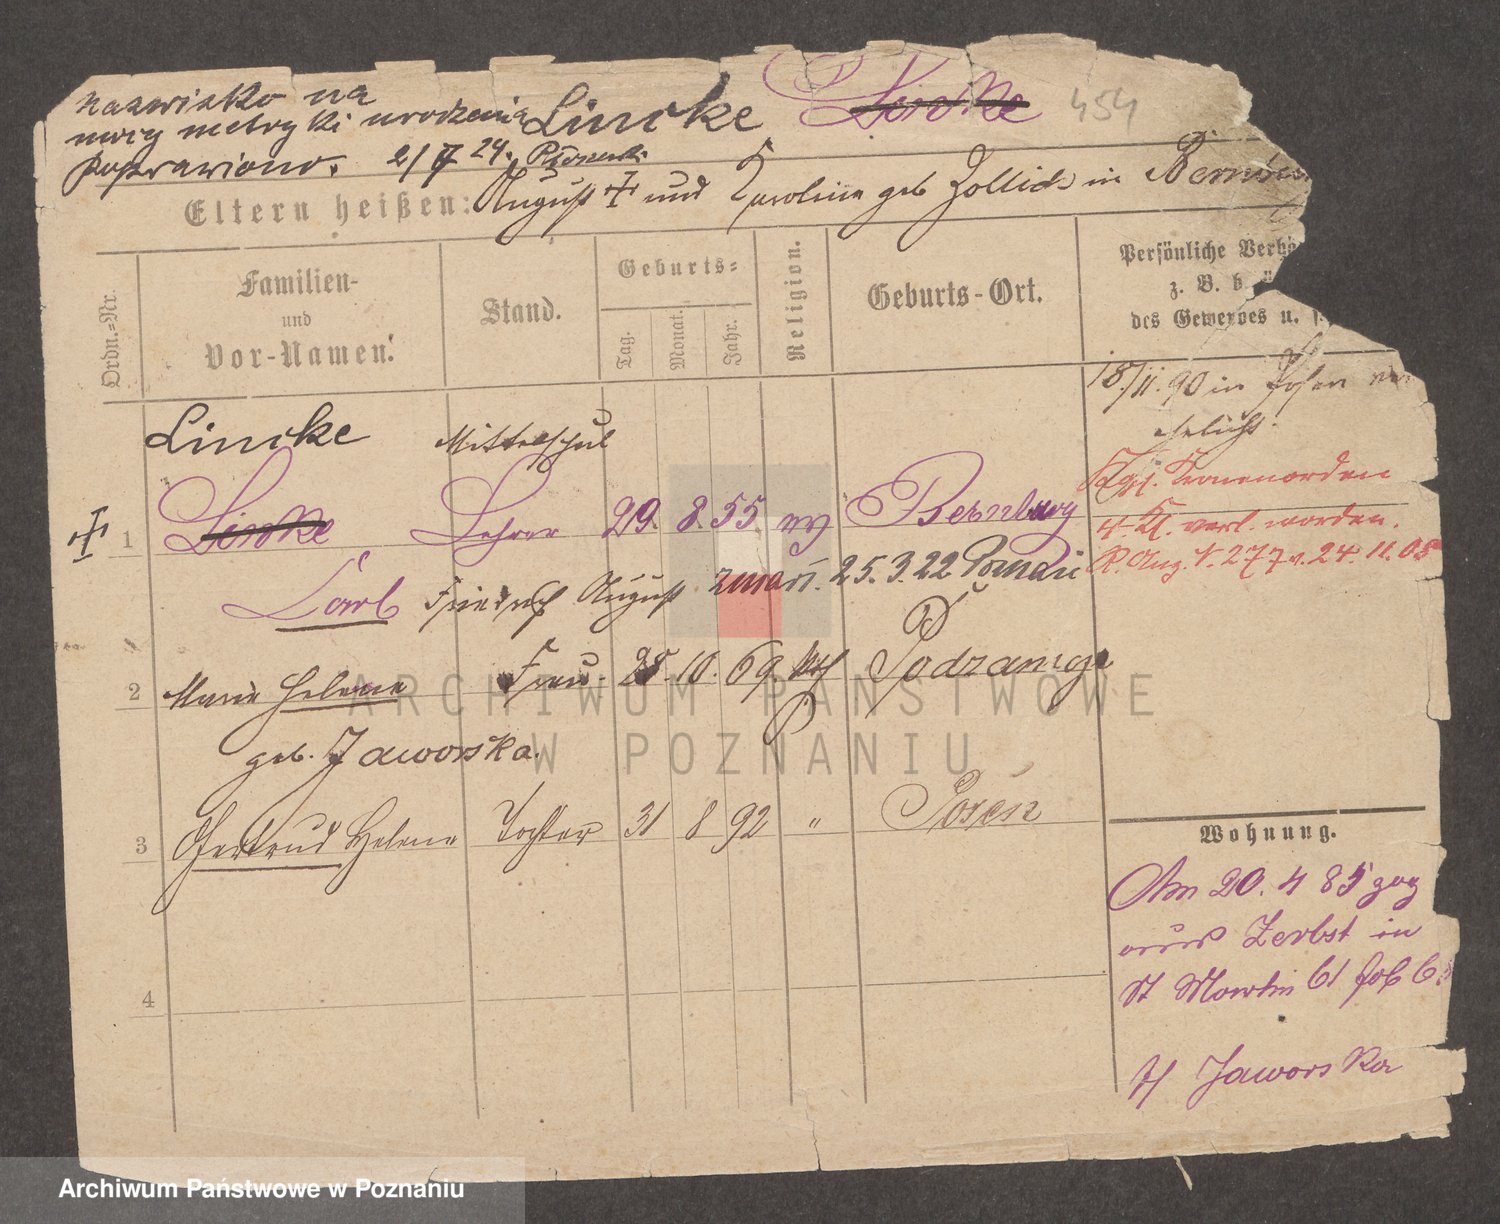 nazwisko na
mocy metryki urodzenia Lincke Lincke 454
poprawiono. 2/7 24.
Eltern heißen: August † und Karoline geb Zollich in
Ordn.-Nr.
Familien-
und
Vor-Namen.
Stand.
Geburts-
Tag.
Monat.
Jahr.
Religion.
Geburts-Ort.
Persönliche
z. B.
des Gewerbes u.
18/11. 90 in Posen ver
ehelicht.
Kgl. Kronenorden
4. Kl. verl. worden.
R. Anz. N. 277 v. 24. 11. 05
Lincke Mittelschul
† 1 Lincke Lehrer 29. 8. 55 ev Bernburg
Carl Friedrich August zmarł. 25. 3. 22 Poznań
2 Marie Helene Frau. 28. 10. 69. kth Podzamcze
geb. Jaworska.
3 Gertrud Helene Tochter 31 8 92 " Posen
4
Wohnung.
Am 20. 4 85 zog
aus Zerbst in
St Martin 61
H Jaworska
ARCHIWUM PAŃSTWOWE
W POZNANIU
Archiwum Państwowe w Poznaniu